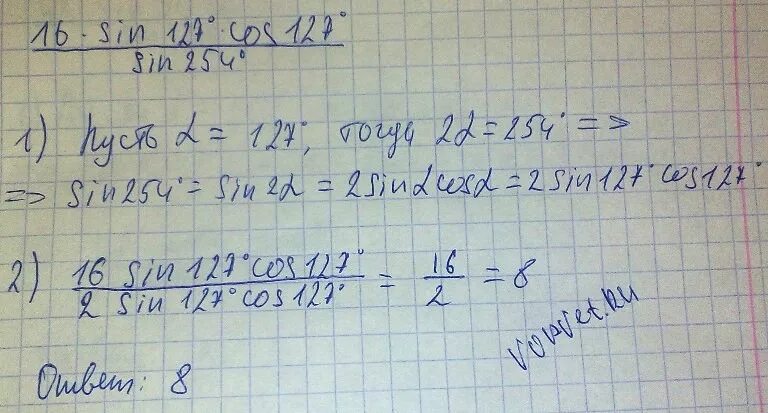 16 · sin 127° · cos 127°
sin 254°
1) Пусть α = 127°, тогда 2α = 254° =>
=> sin 254° = sin 2α = 2 sin α cos α = 2 sin 127° cos 127°
2) 16 sin 127° cos 127° / 2 sin 127° cos 127° = 16 / 2 = 8
vopvet.ru
Ответ: 8